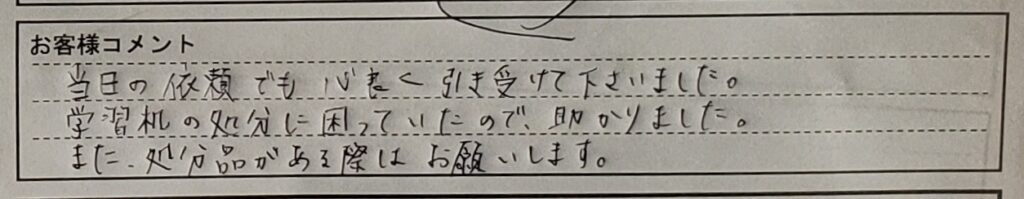 お客様コメント
当日の依頼でも心良く引き受けて下さいました。
学習机の処分に困っていたので、助かりました。
また、処分品がある際はお願いします。